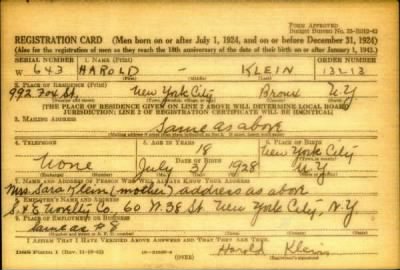 FORM APPROVED
REGISTRATION CARD (Men born on or after July 1, 1924, and on or before December 31, 1924)
(Also for the registration of men as they reach the 18th anniversary of the date of their birth on or after January 1, 1943.)
SERIAL NUMBER 1. NAME (Print) ORDER NUMBER
W 643 HAROLD - KLEIN 13213
(First) (Middle) (Last)
2. PLACE OF RESIDENCE (Print)
992 Fox St. New York City Bronx N.Y.
[THE PLACE OF RESIDENCE GIVEN ON LINE 2 ABOVE WILL DETERMINE LOCAL BOARD
JURISDICTION; LINE 2 OF REGISTRATION CERTIFICATE WILL BE IDENTICAL]
3. MAILING ADDRESS
Same as above
4. TELEPHONE 5. AGE IN YEARS 6. PLACE OF BIRTH
18 New York City
DATE OF BIRTH
None July 31 1928 N.Y.
(Exchange) (Number) (Mo.) (Day) (Yr.)
7. NAME AND ADDRESS OF PERSON WHO WILL ALWAYS KNOW YOUR ADDRESS
Mrs. Sara Klein (mother) address as above
8. EMPLOYER'S NAME AND ADDRESS
S. & E Novelty Co. 60 W. 38 St. New York City, N.Y.
9. PLACE OF EMPLOYMENT OR BUSINESS
Same as # 8
I AFFIRM THAT I HAVE VERIFIED ABOVE ANSWERS AND THAT THEY ARE TRUE.
Harold Klein